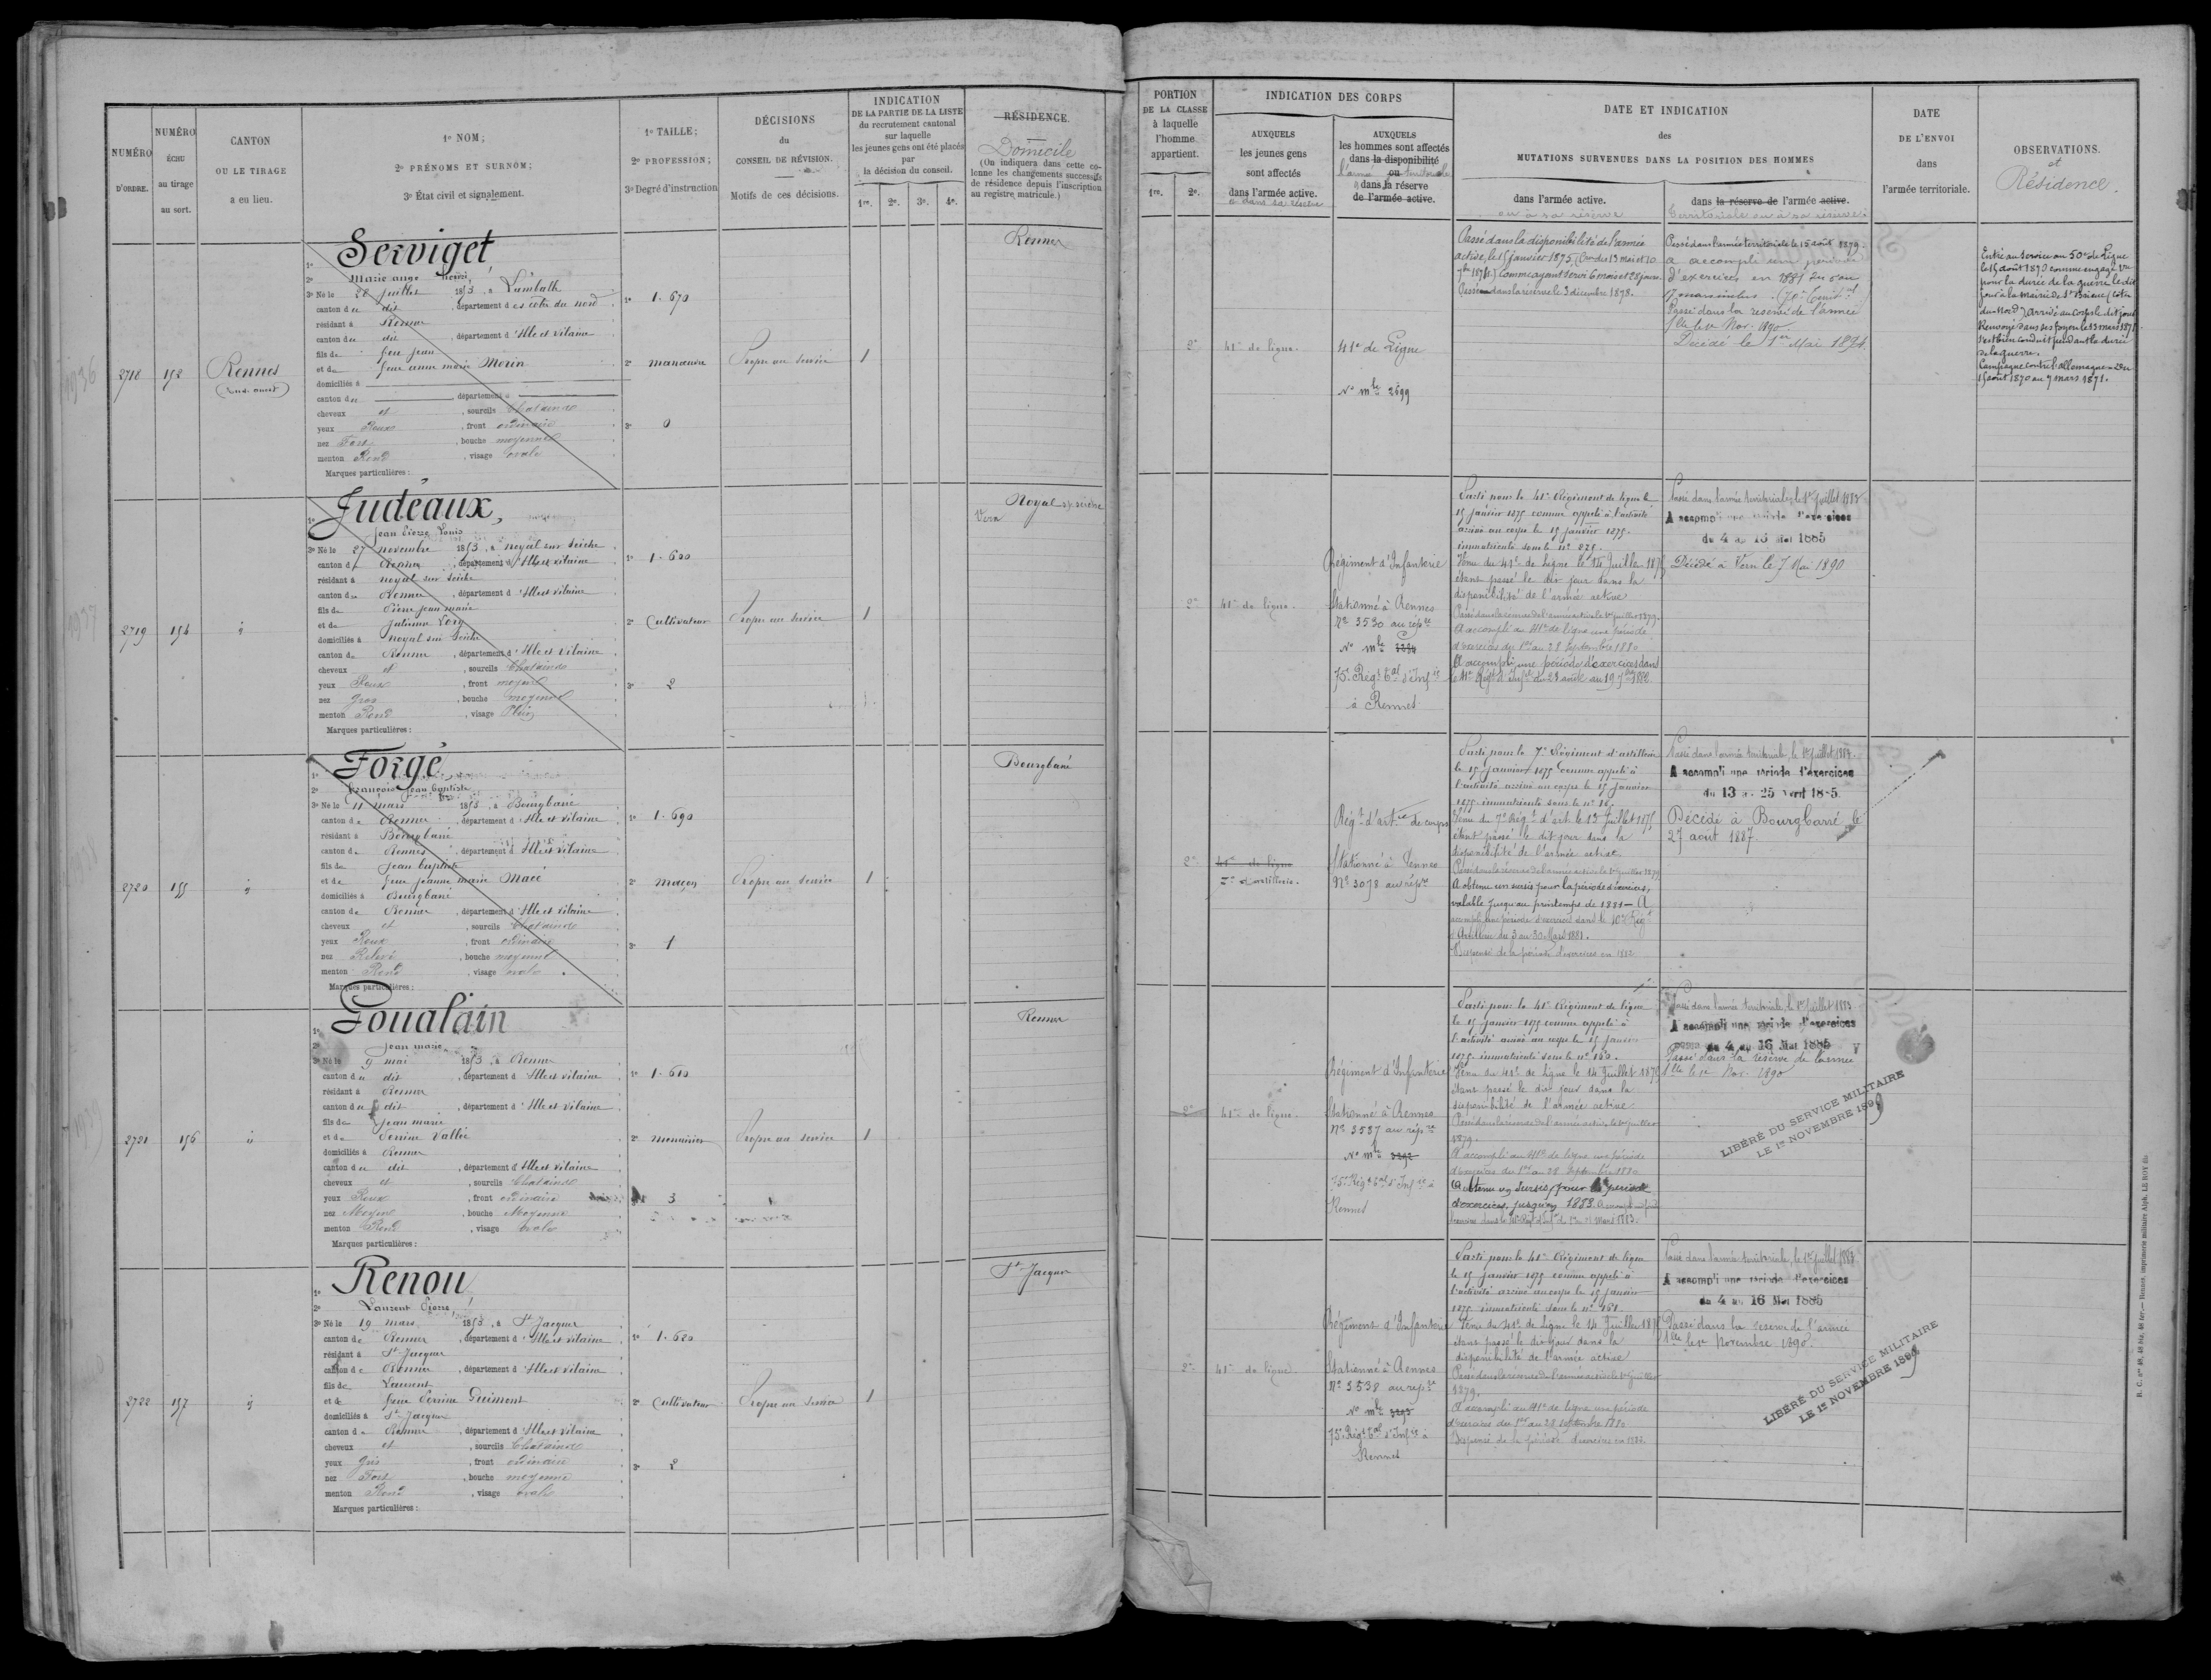 NUMÉRO
D'ORDRE.
NUMÉRO
ÉCHU
au tirage
au sort.
CANTON
OU LE TIRAGE
a eu lieu.
1º NOM;
2º PRÉNOMS ET SURNOM;
3º État civil et signalement.
1º TAILLE;
2º PROFESSION;
3º Degré d'instruction
DÉCISIONS
du
CONSEIL DE RÉVISION.
Motifs de ces décisions.
INDICATION
DE LA PARTIE DE LA LISTE
du recrutement cantonal
sur laquelle
les jeunes gens ont été placés
par
la décision du conseil.
1re. 2e. 3e. 4e.
RÉSIDENCE.
Domicile
(On indiquera dans cette co-
lonne les changements successifs
de résidence depuis l'inscription
au registre matricule.)
PORTION
DE LA CLASSE
à laquelle
l'homme
appartient.
1re. 2e.
INDICATION DES CORPS
AUXQUELS
les jeunes gens
sont affectés
dans l'armée active.
ou dans sa réserve
AUXQUELS
les hommes sont affectés
dans la disponibilité
ou
l'armée territoriale
dans la réserve
de l'armée active.
DATE ET INDICATION
des
MUTATIONS SURVENUES DANS LA POSITION DES HOMMES
dans l'armée active.
ou à sa réserve
dans la réserve de l'armée active.
territoriale ou à sa réserve
DATE
DE L'ENVOI
dans
l'armée territoriale.
OBSERVATIONS.
et
Résidence.
2718
152
Rennes
(Sud-ouest)
1º Serviget
2º Marie ange henri
3º Né le 28 juillet 1853, à Lambath
canton du dit, département des côtes du nord
résidant à Rennes
canton du dit, département d'Ille et vilaine
fils de feu jean
et de feue anne marie Morin
domiciliés à
canton du département d
cheveux et, sourcils Chatains
yeux Roux, front ordinaire
nez Fort, bouche moyenne
menton Rond, visage ovale
Marques particulières:
1º 1.670
2º manœuvre
3º 0
Propre au service
1
Rennes
2e
41e de ligne.
41e de Ligne
Nº mle 2599
Passé dans la disponibilité de l'armée
active, le 15 janvier 1875,
comme ayant servi 6 mois et 28 jours.
Passé dans la réserve le 3 décembre 1878.
Passé dans l'armée territoriale le 15 août 1879.
a accompli une période
d'exercices en 1881 du 5 au
17 mars inclus.
Passé dans la réserve de l'armée
tlle le 1er Nov. 1890
Décédé le 1er Mai 1894
Entré au service au 50e de Ligne
le 15 août 1870 comme engagé vre
pour la durée de la guerre le dit
jour à la mairie de St Brieuc (Côtes
du Nord) Arrivé au corps le dit jour
Renvoyé dans ses foyers le 13 mars 1871
S'est bien conduit pendant la durée
de la guerre.
Campagne contre l'allemagne du
15 août 1870 au 7 mars 1871.
2719
154
id
1º Judeaux,
Jean Pierre Louis
3º Né le 27 novembre 1853, à noyal sur seiche
canton de Rennes, département d'Ille et vilaine
résidant à noyal sur seiche
canton de Rennes, département d'Ille et vilaine
fils de Pierre jean marie
et de Julienne Lory
domiciliés à noyal sur seiche
canton de Rennes, département d'Ille et vilaine
cheveux et, sourcils Chatains
yeux Roux, front moyen
nez gros, bouche moyenne
menton Rond, visage Plein
Marques particulières:
1º 1.620
2º Cultivateur
3º 2
Propre au service
1
Noyal sr seiche
Vern
2e
41e de ligne.
Régiment d'Infanterie
Stationné à Rennes
Nº 3530 au répre
Nº mle
75e Régt tal d'Infie
à Rennes
Parti pour le 41e Régiment de ligne le
15 janvier 1875 comme appelé à l'activité
arrivé au corps le 15 janvier 1875.
immatriculé sous le nº 275.
Venu du 41e de Ligne le 14 Juillet 1875
étant passé le dit jour dans la
disponibilité de l'armée active
Passé dans la réserve de l'armée active le 1er juillet 1879.
A accompli au 41e de ligne une période
d'exercices du 1er au 28 Septembre 1880
A accompli une période d'exercices dans
le 41e Régt d'Infie du 23 août au 19 7bre 1882.
Passé dans l'armée territoriale, le 1er Juillet 1883
A accompli une période d'exercices
du 4 au 16 Mai 1885
Décédé à Vern le 7 Mai 1890
2720
155
id
1º Forgé
2º François Jean baptiste
3º Né le 11 mars 1853, à Bourgbarré
canton de Rennes, département d'Ille et vilaine
résidant à Bourgbarré
canton de Rennes, département d'Ille et vilaine
fils de Jean baptiste
et de feue jeanne marie Macé
domiciliés à Bourgbarré
canton de Rennes, département d'Ille et vilaine
cheveux et, sourcils Chatains
yeux Roux, front ordinaire
nez Relevé, bouche moyenne
menton Rond, visage ovale
Marques particulières:
1º 1.690
2º maçon
3º 1
Propre au service
1
Bourgbarré
2e
41e de ligne
7e d'artillerie.
Régt d'artie de corps
Stationné à Rennes
Nº 3078 au répre
Parti pour le 7e Régiment d'artillerie
le 15 janvier 1875 comme appelé à
l'activité arrivé au corps le 15 janvier
1875 immatriculé sous le nº 16.
Venu du 7e Régt d'art. le 13 Juillet 1875
étant passé le dit jour dans la
disponibilité de l'armée active
Passé dans la réserve de l'armée active le 1er juillet 1879
A obtenu un sursis pour la période d'exercices,
valable jusqu'au printemps de 1881 - A
accompli une période d'exercices dans le 10e Régt
d'Artillerie du 3 au 30 Mars 1881.
Dispensé de la période d'exercices en 1882
Passé dans l'armée territoriale, le 1er Juillet 1883.
A accompli une période d'exercices
du 13 au 25 Avril 1885.
Décédé à Bourgbarré le
27 août 1887
2721
156
id
1º Goualain
2º Jean marie
3º Né le 9 mai 1853, à Rennes
canton du dit, département d'Ille et vilaine
résidant à Rennes
canton du dit, département d'Ille et vilaine
fils de jean marie
et de Perrine Vallée
domiciliés à Rennes
canton du dit, département d'Ille et vilaine
cheveux et, sourcils Chatains
yeux Roux, front ordinaire
nez Moyen, bouche Moyenne
menton Rond, visage ovale
Marques particulières:
1º 1.610
2º menuisier
3
Propre au service
1
Rennes
2e
41e de ligne.
Régiment d'Infanterie
Stationné à Rennes
Nº 3537 au répre
Nº mle 3292
75e Régt tal d'Infie à
Rennes
Parti pour le 41e Régiment de ligne
le 15 janvier 1875 comme appelé à
l'activité arrivé au corps le 15 janvier
1875 immatriculé sous le nº 160.
Venu du 41e de Ligne le 14 Juillet 1875
étant passé le dit jour dans la
disponibilité de l'armée active
Passé dans la réserve de l'armée active, le 1er juillet
1879.
A accompli au 41e de ligne une période
d'exercices du 1er au 28 Septembre 1880
A obtenu un sursis pour la période
d'exercices, jusqu'en 1883.
Passé dans l'armée territoriale, le 1er Juillet 1883
A accompli une période d'exercices
du 4 au 16 Mai 1885
Passé dans la réserve de l'armée
tlle le 1er Nov. 1890
LIBÉRÉ DU SERVICE MILITAIRE
LE 1er NOVEMBRE 1899
2722
157
id
1º Renou
2º Laurent Pierre
3º Né le 19 mars 1853, à St Jacques
canton de Rennes, département d'Ille et vilaine
résidant à St Jacques
canton de Rennes, département d'Ille et vilaine
fils de Laurent
et de feue Perrine Guimont
domiciliés à St Jacques
canton de Rennes, département d'Ille et vilaine
cheveux et, sourcils Chatains
yeux gris, front ordinaire
nez Fort, bouche moyenne
menton Rond, visage ovale
Marques particulières:
1º 1.620
2º Cultivateur
3º 2
Propre au service
1
St Jacques
2e
41e de ligne.
Régiment d'Infanterie
Stationné à Rennes
Nº 3538 au répre
Nº mle 3293
75e Régt tal d'Infie à
Rennes
Parti pour le 41e Régiment de ligne
le 15 janvier 1875 comme appelé à
l'activité arrivé au corps le 15 janvier
1875 immatriculé sous le nº 161.
Venu du 41e de Ligne le 14 Juillet 1875
étant passé le dit jour dans la
disponibilité de l'armée active
Passé dans la réserve de l'armée active le 1er juillet
1879.
A accompli au 41e de ligne une période
d'exercices du 1er au 28 septembre 1880
Dispensé de la période d'exercices en 1882.
Passé dans l'armée territoriale, le 1er Juillet 1883
A accompli une période d'exercices
du 4 au 16 Mai 1885
Passé dans la réserve de l'armée
tlle le 1er Novembre 1890.
LIBÉRÉ DU SERVICE MILITAIRE
LE 1er NOVEMBRE 1899